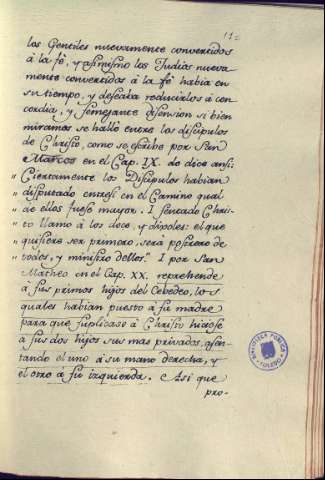 los Gentiles nuevamente convertidos
à la fè, y asimismo los Judias nueva
mente convertidos á la fe habia en
su tiempo, y deseaba reducirlos á con
cordia, y semejante disension si bien
miramos se halló entre los discipulos
de Christo, como se escribe por San
Marcos en el Cap. IX. do dice ansi:
" Ciertamente los Discipulos habian
" disputado entresi en el Camino qual
" de ellos fuese mayor. I sentado Chris-
" to llamo á los doce, y dijoles: el que
" quisiere ser primero, sera postrero de
" todos, y ministro dellos." I por San
Matheo en el Cap. XX. reprehende
á sus primos hijos del Cebedeo, los
quales habian puesto á su madre
para que suplicase á Christo hiciese
a sus dos hijos sus mas privados, asen-
tando el uno á su mano derecha, y
el otro á su izquierda. Asi que
pro-
BIBLIOTECA PUBLICA
TOLEDO